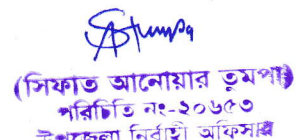 (সিফাত আনোয়ার তুমপা)
পরিচিতি নং-২০৬৫৩
উপজেলা নির্বাহী অফিসার